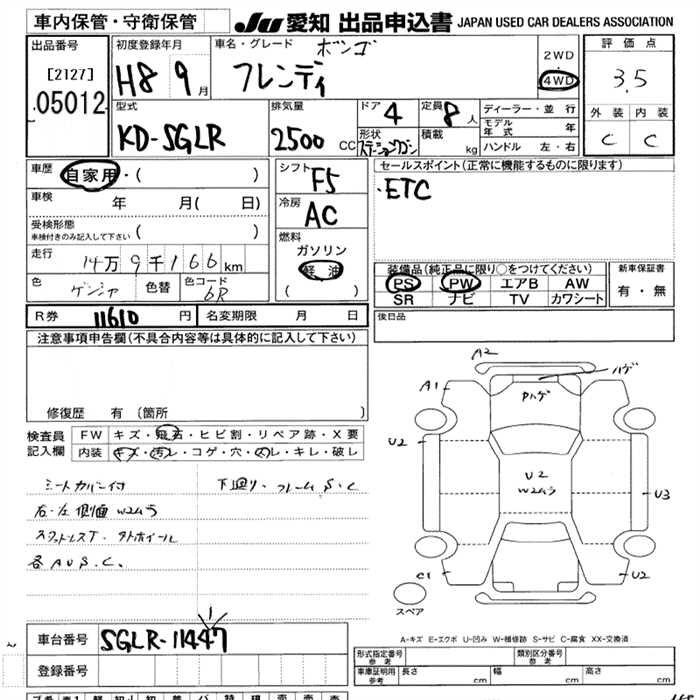 車内保管・守衛保管
JU 愛知 出品申込書 JAPAN USED CAR DEALERS ASSOCIATION
出品番号
[2127]
05012
初度登録年月
H8 9月
車名・グレード ボンゴ
フレンディ
2WD
4WD
評価点
3.5
外装 内装
C C
型式
KD-SGLR
排気量
2500 CC
ドア 4
形状
ステーションワゴン
定員 8人
積載 kg
ディーラー・並行
モデル年式 年
ハンドル 左・右
車歴 自家用・( )
車検 年 月( 日)
受検形態
車検付きのみ記入して下さい ( )
走行 14万9千166km
色 ゲンシャ 色替 色コード 6R
シフト F5
冷房 AC
燃料
ガソリン
軽油
( )
セールスポイント(正常に機能するものに限ります)
・ETC
装備品(純正品に限り○をつけてください)
PS PW エアB AW
SR ナビ TV カワシート
新車保証書
有・無
R券 11610 円 名変期限 月 日
後日品
注意事項申告欄(不具合内容等は具体的に記入して下さい)
修復歴 有 (箇所 )
検査員記入欄
FW キズ・飛石・ヒビ割・リペア跡・X要
内装 キズ・汚レ・コゲ・穴・スレ・キレ・破レ
シートカバー付
右・左側面 W2ムラ
各AUS.C.
下廻り・フレームS.C
A2
ハゲ
A1
Pハゲ
U2
U2
W2ムラ
U3
C1
U2
スペア
A-キズ E-エクボ U-凹み W-補修跡 S-サビ C-腐食 XX-交換済
車台番号 SGLR-11447
登録番号
型式指定番号
参考
類別区分番号
参考
車庫証明用
参考
長さ cm 幅 cm 高さ cm